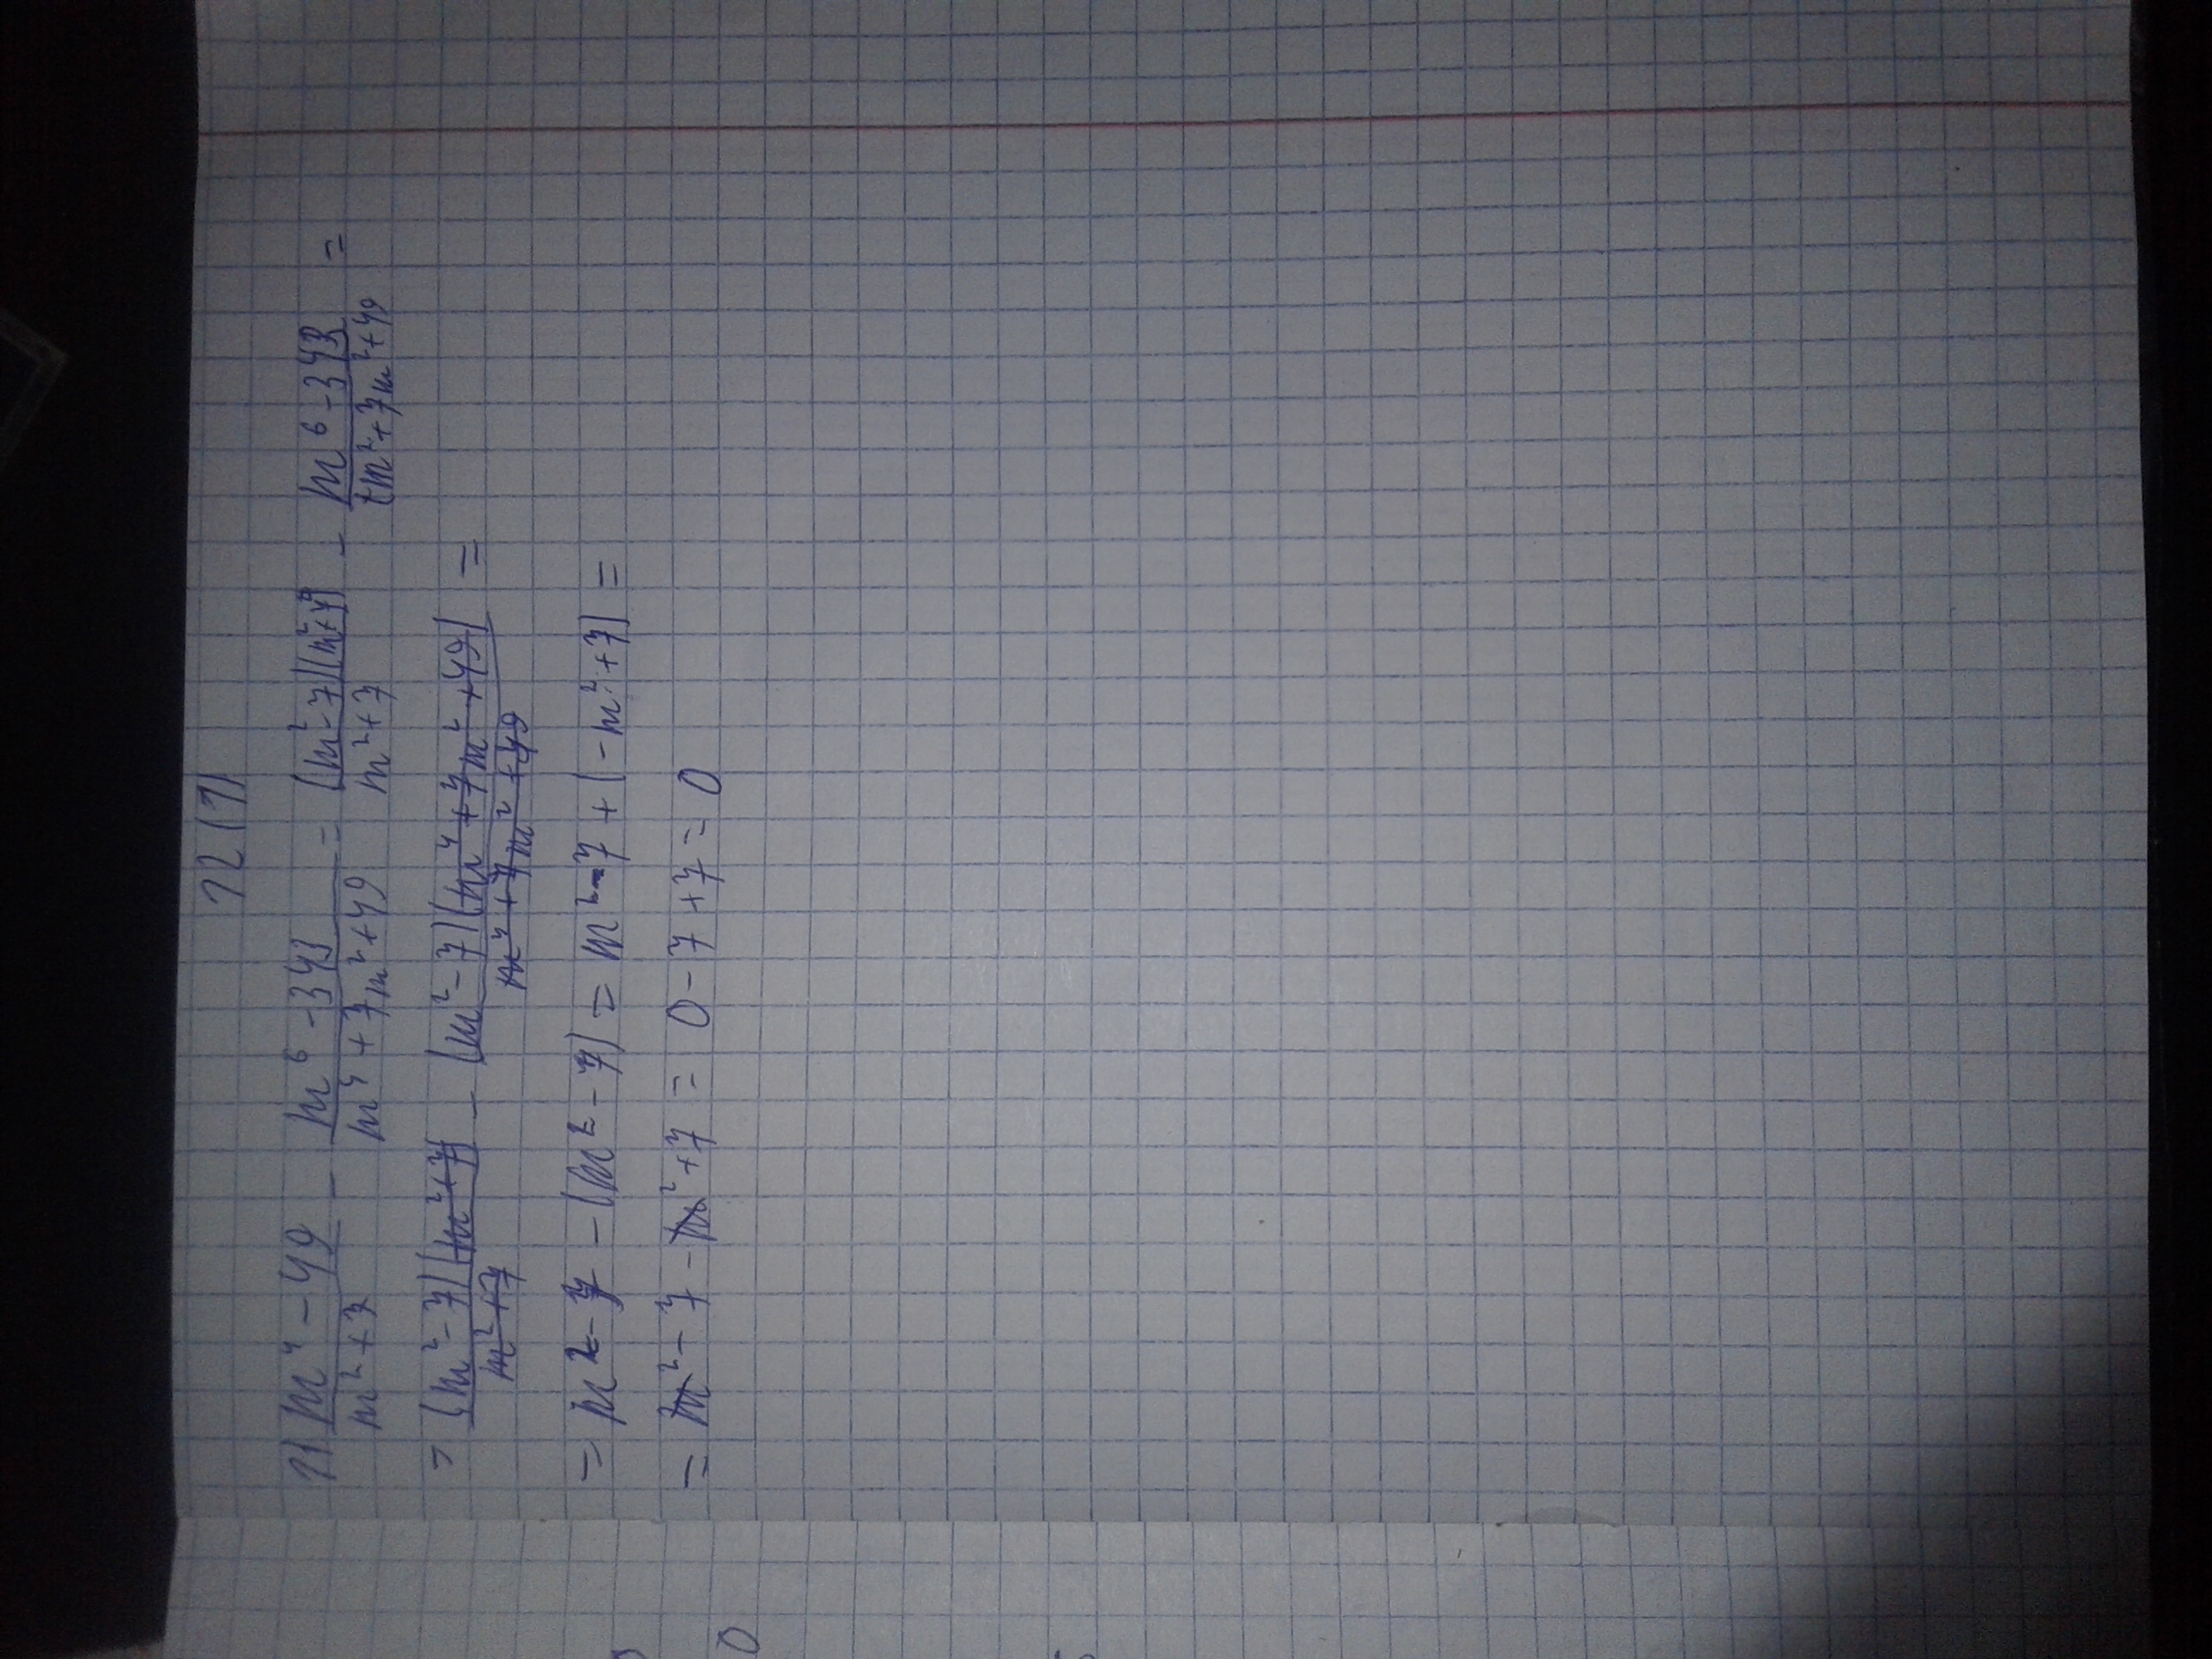 12(1)
1) (m⁴ - 49)/(m² + 7) - (m⁶ - 343)/(m⁴ + 7m² + 49) = ((m² - 7)(m² + 7))/(m² + 7) - (m⁶ - 343)/(m² + 7m² + 49) =
= ((m² - 7)(m² + 7))/(m² + 7) - ((m² - 7)(m⁴ + 7m² + 49))/(m⁴ + 7m² + 49) =
= m² - 7 - (m² - 7) = m² - 7 + (-m² + 7) =
= m² - 7 - m² + 7 = 0 - 7 + 7 = 0
0